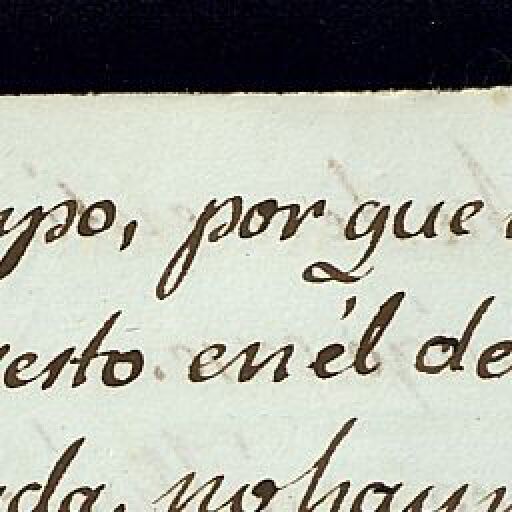 ypo, por que
esto en él de
da, no hay